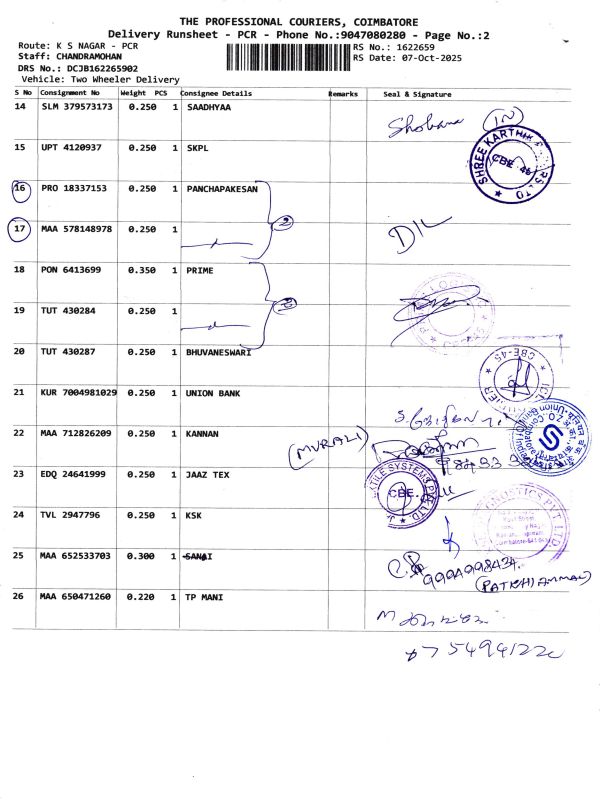 THE PROFESSIONAL COURIERS, COIMBATORE
Delivery Runsheet - PCR - Phone No.:9047080280 - Page No.:2
Route: K S NAGAR - PCR
RS No.: 1622659
Staff: CHANDRAMOHAN
RS Date: 07-Oct-2025
DRS No.: DCJB162265902
Vehicle: Two Wheeler Delivery
S No Consignment No Weight PCS Consignee Details Remarks Seal & Signature
14 SLM 379573173 0.250 1 SAADHYAA
Shobana (IN)
SHREE KARTHIK
CBE-45
15 UPT 4120937 0.250 1 SKPL
16 PRO 18337153 0.250 1 PANCHAPAKESAN
2
17 MAA 578148978 0.250 1
D/L
18 PON 6413699 0.350 1 PRIME
2
19 TUT 430284 0.250 1
20 TUT 430287 0.250 1 BHUVANESWARI
CBE-45
21 KUR 7004981029 0.250 1 UNION BANK
22 MAA 712826209 0.250 1 KANNAN
(MURALI)
23 EDQ 24641999 0.250 1 JAAZ TEX
SYSTEMS PVT LTD
CBE.
24 TVL 2947796 0.250 1 KSK
GISTICS PVT LTD
25 MAA 652533703 0.300 1 SANAI
9994998434
(PATCHIAMMAL)
26 MAA 650471260 0.220 1 TP MANI